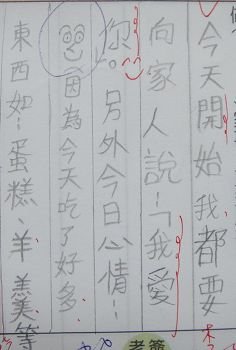 今天開始我都要
向家人說…「我愛
你。另外今日心情…
因為今天吃了好多
東西如…蛋糕、羊羹等